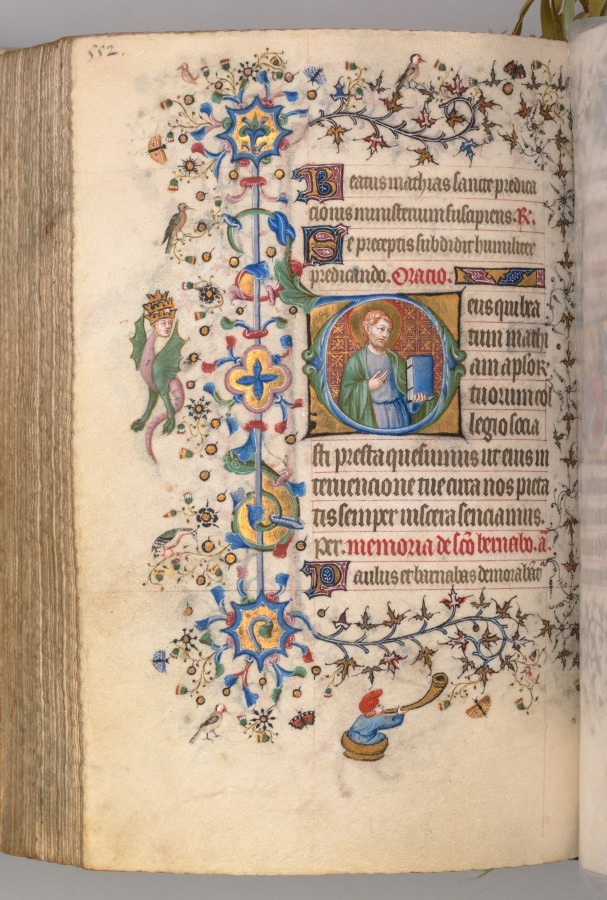 552.
Beatus mathias sancte predica
cionis ministerium suscipiens. R.
Se preceptis subdidit humiliter
predicando. Oracio.
Deus qui bea
tum mathi
am apl'or
tuorum col
legio socia
sti presta quesumus ut eius in
tervencione tue circa nos pieta
tis semper viscera senciamus.
per. memoria de sco bernabo. a.
Paulus et barnabas demorabāt